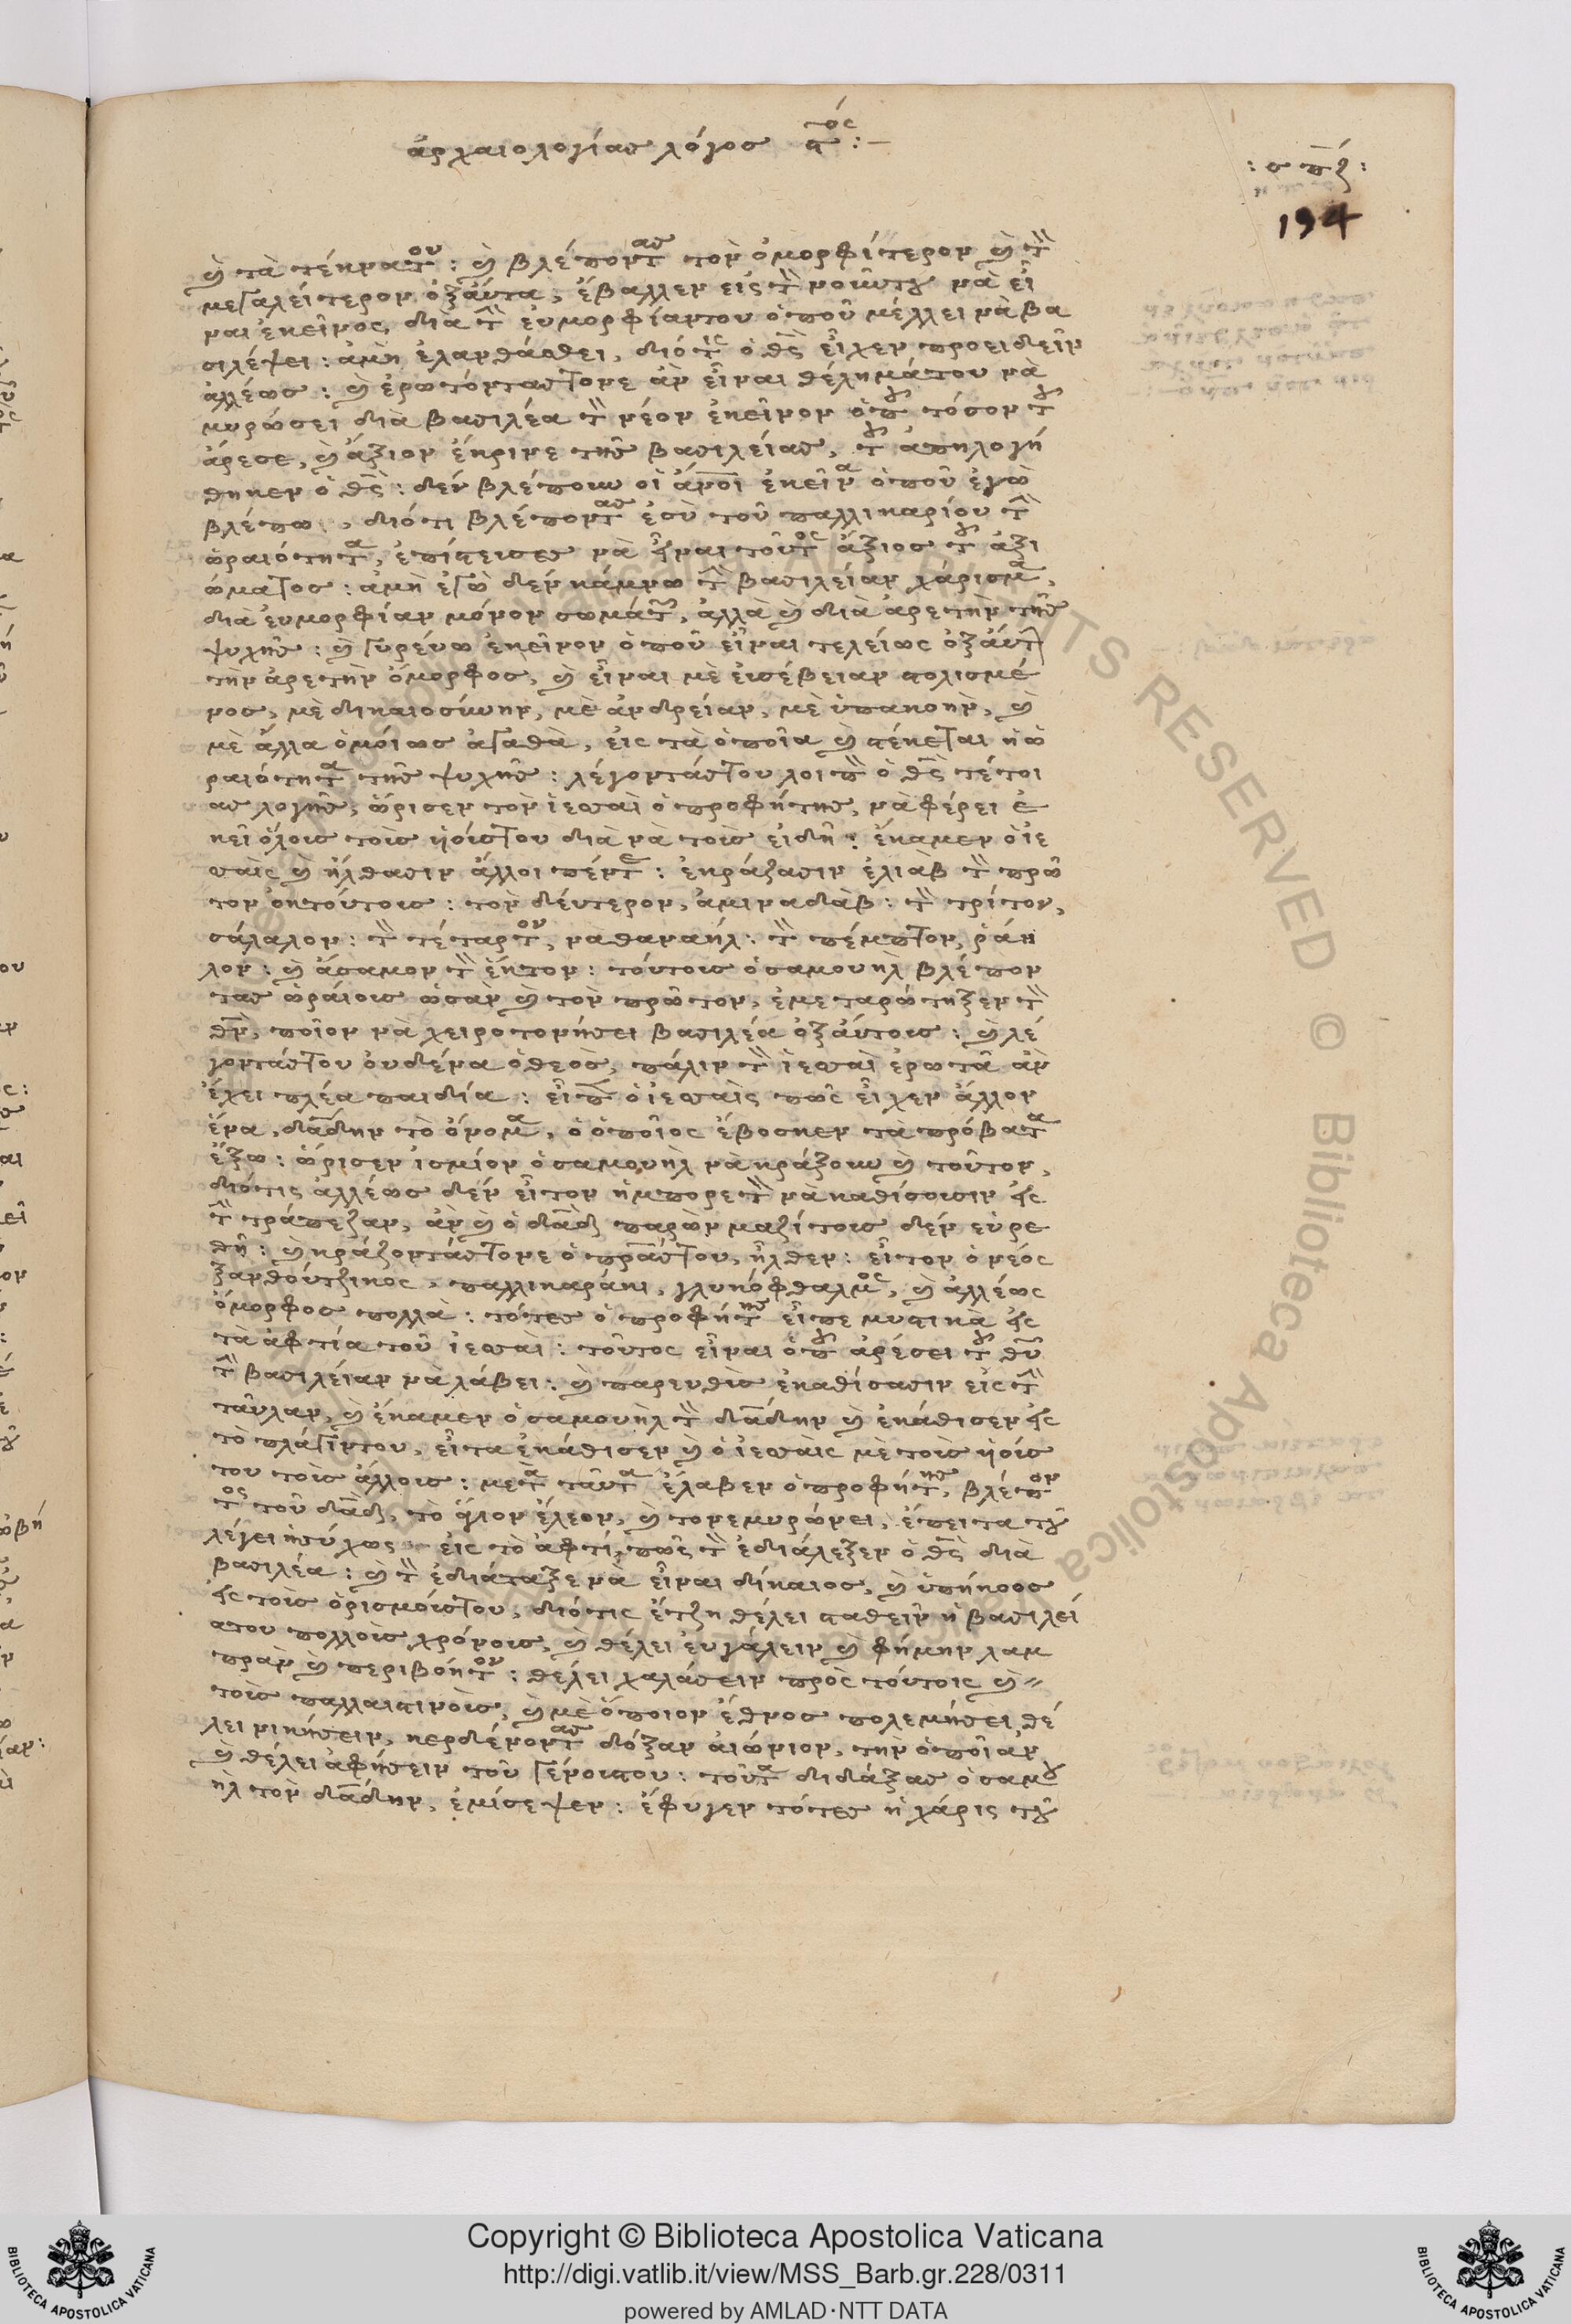 ἀρχαιολογίας λόγος ϛ^ος :—
: σπζ :
194
κ(αὶ) τὰ τέκνατου : κ(αὶ) βλέποντας τὸν ὀμορφίτερον κ(αὶ) τὸν
μεγαλείτερον ὀξαύτα, ἔβαλλεν εἰς τὸν νοῦντου νὰ εἶ
ναι ἐκεῖνος, διὰ τὴν εὐμορφίαντου ὁποῦ μέλλει νὰ βα
σιλέψει : ἀμὴ ἐλανθάσθει, διότις ὁ θς εἶχεν προειδεῖν
ἀλλέως : κ(αὶ) ἐρωτόνταστονε ἂν εἶναι θέλημάτου νὰ
μυρώσει διὰ βασιλέα τὸν νέον ἐκεῖνον ὁποῦ τόσον τοῦ
ἄρεσε, κ(αὶ) ἄξιον ἔκρινε τῆς βασιλείας, τοῦ ἀπηλογή
θηκεν ὁ θς : δὲν βλέπουν οἱ ἄνοι ἐκεῖνα ὁποῦ ἐγὼ
βλέπω, διότι βλέποντας ἐσὺ τοῦ παλλικαρίου τὴν
ὡραιότητα, ἐπίστεισες νὰ εἶναι τοῦτος ἄξιος τοῦ ἀξι
ώματος : ἀμὴ ἐγὼ δὲν κάμνω τὴν βασιλείαν χάρισμα,
διὰ εὐμορφίαν μόνον σωμάτων, ἀλλὰ κ(αὶ) διὰ ἀρετὴν τῆς
ψυχῆς : κ(αὶ) γυρεύω ἐκεῖνον ὁποῦ εἶναι τελείως ὀξαύτην
τὴν ἀρετὴν ὄμορφος, κ(αὶ) εἶναι μὲ εὐσέβειαν στολισμέ
νος, μὲ δικαιοσύνην, μὲ ἀνδρείαν, μὲ ὑπακοὴν, κ(αὶ)
μὲ ἄλλα ὁμοίως ἀγαθὰ, εἰς τὰ ὁποῖα κ(αὶ) στέκεται ἡ ὡ
ραιότητα τῆς ψυχῆς : λέγοντάστου λοιπὸν ὁ θς τέτοι
ας λογῆς, ὥρισεν τὸν ἰεσσαὶ ὁ προφήτης, νὰ φέρει ἐ
κεῖ ὅλοις τοὶς ὑοίστου διὰ νὰ τοὶς εἰδῆ : ἔκαμεν ὁ ἰε
σσαὶς κ(αὶ) ἤλθασιν ἄλλοι πέντε : ἐκράζασιν ἐλιὰβ τὸν πρῶ
τον ὀκτούτοις : τὸν δεύτερον, ἀμιναδὰβ : τὸν τρίτον,
σάλαλον : τὸν τέταρτον, ναθαναήλ : τὸν πέμπτον, ῥάη
λον : κ(αὶ) ἄσαμον τὸν ἕκτον : τούτοις ὁ σαμουὴλ βλέπον
τας ὡραίοις ὡσὰν κ(αὶ) τὸν πρῶτον, ἐμεταρώτηξεν τὸν
θν, ποῖον νὰ χειροτονήσει βασιλέα ὀξαύτοις : κ(αὶ) λέ
γοντάστου οὐδένα ὁ θεὸς, πάλιν τὸν ἰεσσαὶ ἐρωτᾶ ἂν
ἔχει πλέα παιδία : εἶπεν ὁ ἰεσσαὶς πῶς εἶχεν ἄλλον
ἕνα, δαδην τὸ ὄνομα, ὁ ὁποῖος ἔβοσκεν τὰ πρόβατα
ἔξω : ὥρισεν ἰσμίον ὁ σαμουὴλ νὰ κράξουν κ(αὶ) τοῦτον,
διότις ἀλλέως δὲν εἶτον ἡμπορετὸν νὰ καθίσουσιν εἰς
τὴν τράπεζαν, ἂν κ(αὶ) ὁ δαδ παρὼν μαζίτοις δὲν εὑρε
θῆ : κ(αὶ) κράζοντάστονε ὁ πραστου, ἦλθεν : εἶτον ὁ νέος
ξανθούτζικος, παλλικαράκι, γλυκόφθαλμος, κ(αὶ) ἀλλέως
ὄμορφος πολλὰ : τότες ὁ προφήτης εἶπε μυστικὰ εἰς
τὰ ἀφτία τοῦ ἰεσσαὶ : τοῦτος εἶναι ὁποῦ ἀρέσει τοῦ θυ
τὴν βασιλείαν νὰ λάβει : κ(αὶ) παρευθὺς ἐκαθίσασιν εἰς τὴν
ταῦλαν, κ(αὶ) ἔκαμεν ὁ σαμουὴλ τὸν δαδην κ(αὶ) ἐκάθισεν εἰς
τὸ πλάγιντου, εἶτα ἐκάθισεν κ(αὶ) ὁ ἰεσσαὶς μὲ τοὶς ὑοίς
του τοὶς ἄλλοις : μετὰ ταῦτα ἔλαβεν ὁ προφήτης, βλέπον
τος τοῦ δαδ, τὸ ἅγιον ἔλεον, κ(αὶ) τονεμυρώνει, ἔπειτα τοῦ
λέγει ἡσύχως εἰς τὸ ἀφτί, πῶς τὸν ἐδιάλεξεν ὁ θς διὰ
βασιλέα : κ(αὶ) τὸν ἐδιάταξε νὰ εἶναι δίκαιος, κ(αὶ) ὑπήκοος
εἰς τοὶς ὁρισμοίστου, διότις ἔτζη θέλει σταθεῖν ἡ βασιλεί
ατου πολλοὶς χρόνοις, κ(αὶ) θέλει εὐγάλειν κ(αὶ) φήμην λαμ
πρὰν κ(αὶ) περιβόητον : θέλει χαλάσειν πρὸς τούτοις κ(αὶ)
τοὶς παλλαιστινοὶς, κ(αὶ) μὲ ὅποιον ἔθνος πολεμήσει, θέ
λει νικήσειν, κερδένοντας δόξαν αἰώνιον, τὴν ὁποῖαν
κ(αὶ) θέλει ἀφήσειν τοῦ γένουςτου : τοῦτα διδάξας ὁ σαμου
ὴλ τὸν δαδην, ἐμίσεψεν : ἔφυγεν τότες ἡ χάρις τοῦ
Copyright © Biblioteca Apostolica Vaticana
http://digi.vatlib.it/view/MSS_Barb.gr.228/0311
powered by AMLAD·NTT DATA